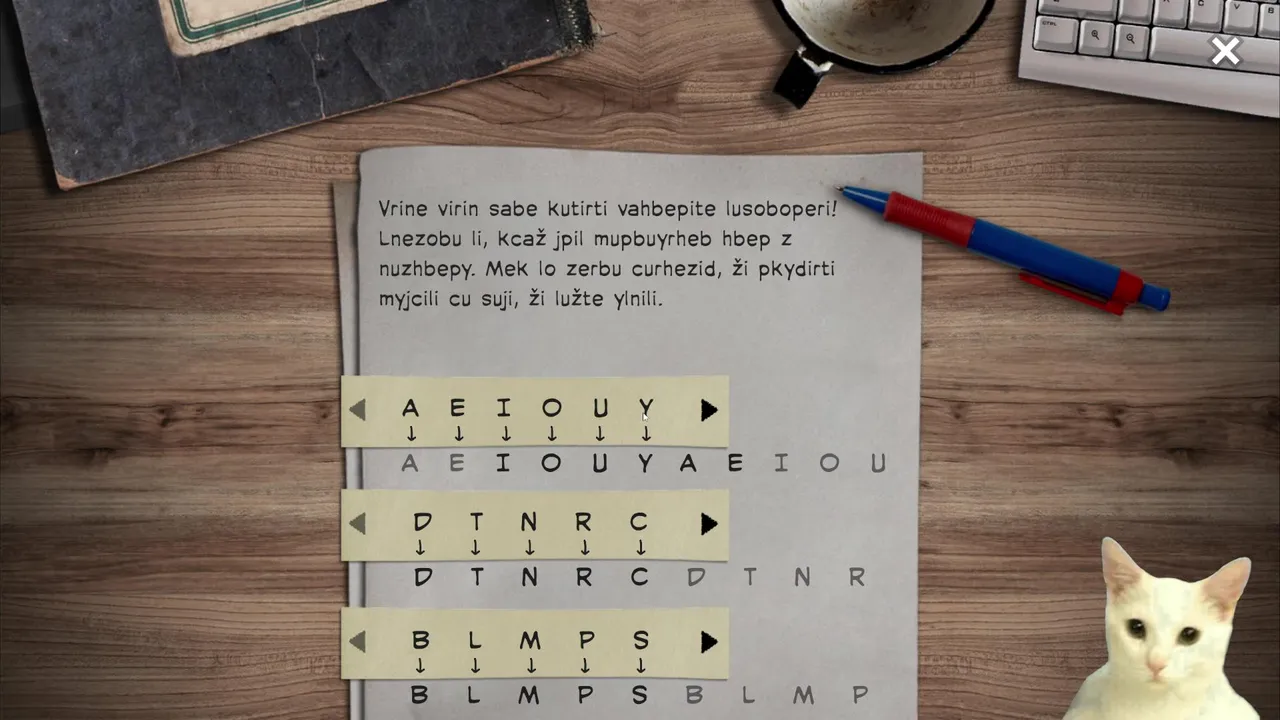 Vrine virin sabe kutirti vahbepite lusoboperi!
Lnezobu li, kcaž jpil mupbuyrheb hbep z
nuzhbepy. Mek lo zerbu curhezid, ži pkydirti
myjcili cu suji, ži lužte ylnili.
A E I O U Y
A E I O U Y A E I O U
D T N R C
D T N R C D T N R
B L M P S
B L M P S B L M P